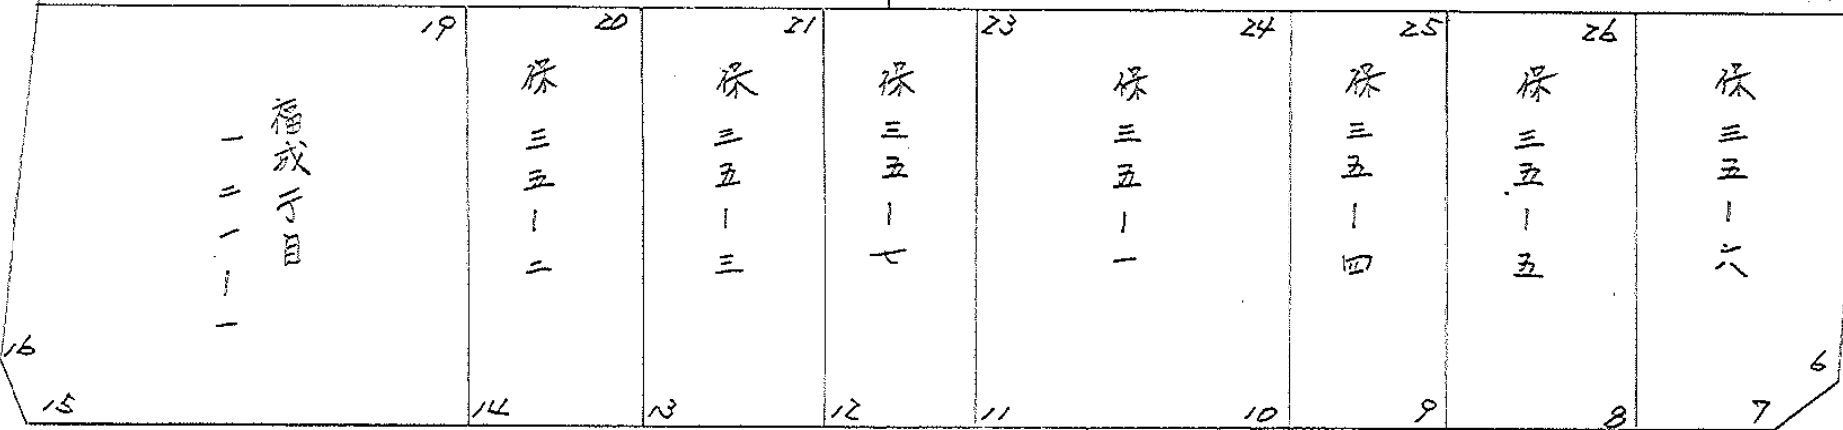 19
20
21
23
24
25
26
福成丁目
一二一ー一
保三五ー二
保三五ー三
保三五ー七
保三五ー一
保三五ー四
保三五ー五
保三五ー六
16
15
14
13
12
11
10
9
8
7
6